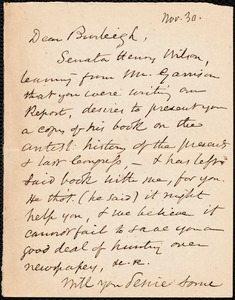 Nov. 30.
Dear Burleigh,
Senator Henry Wilson,
learning from Mr. Garrison
that you were writing our
Report, desires to present you
a copy of his book on the
antisl. history of the present
& last Congress — & has left
said book with me, for you.
He tho't (he said) it might
help you, & we believe it
cannot fail to save you a
good deal of hunting over
newspapers, &c. &c.
Will you
some